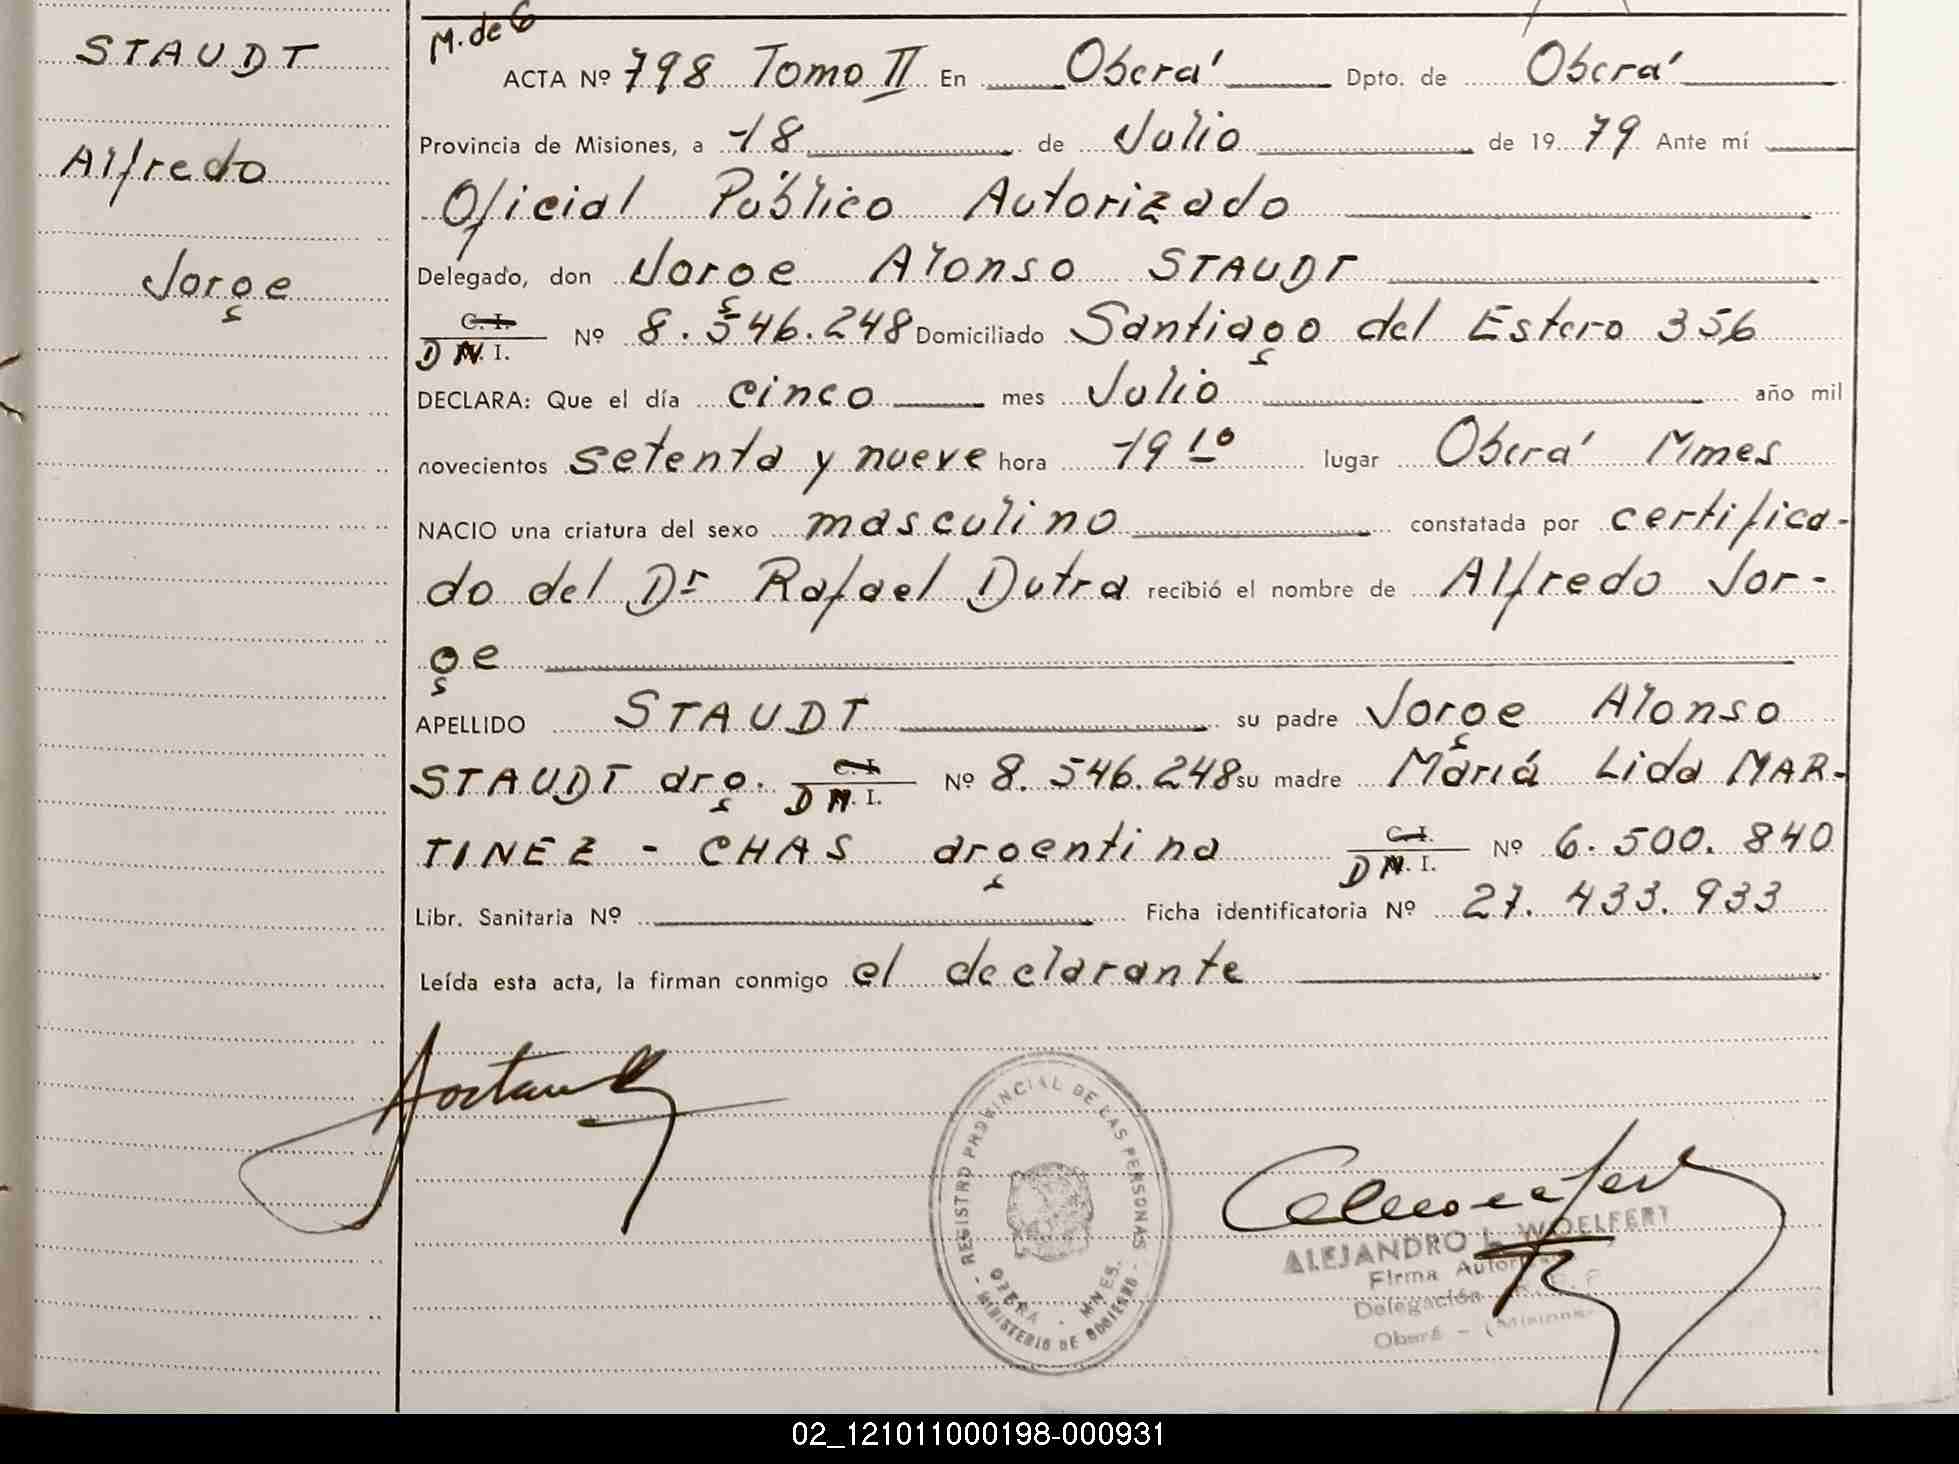 STAUDT
Alfredo
Jorge
M. de G
ACTA Nº 798 Tomo II En Oberá Dpto. de Oberá
Provincia de Misiones, a 18 de Julio de 1979 Ante mí
Oficial Público Autorizado
Delegado, don Jorge Alonso STAUDT
C. I.
D N. I. Nº 8.546.248 Domiciliado Santiago del Estero 356
DECLARA: Que el día cinco mes Julio año mil
novecientos setenta y nueve hora 19 10 lugar Oberá Mnes
NACIO una criatura del sexo masculino constatada por certifica-
do del Dr Rafael Dutra recibió el nombre de Alfredo Jor-
ge
APELLIDO STAUDT su padre Jorge Alonso
STAUDT arg. C. I. D N. I. Nº 8.546.248 su madre María Lida MAR-
TINEZ - CHAS argentina C. I. D N. I. Nº 6.500.840
Libr. Sanitaria Nº Ficha identificatoria Nº 27.433.933
Leída esta acta, la firman conmigo el declarante
- REGISTRO PROVINCIAL DE LAS PERSONAS -
OBERÁ - MNES.
MINISTERIO DE GOBIERNO
ALEJANDRO L. WOELFERT
Firma Autor
Delegación R. P.
Oberá - (Misiones
02_121011000198-000931